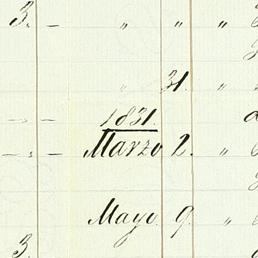 3. — " " "
" 31. "
1831.
— . — Marzo 2. "
Mayo 9. "
3.